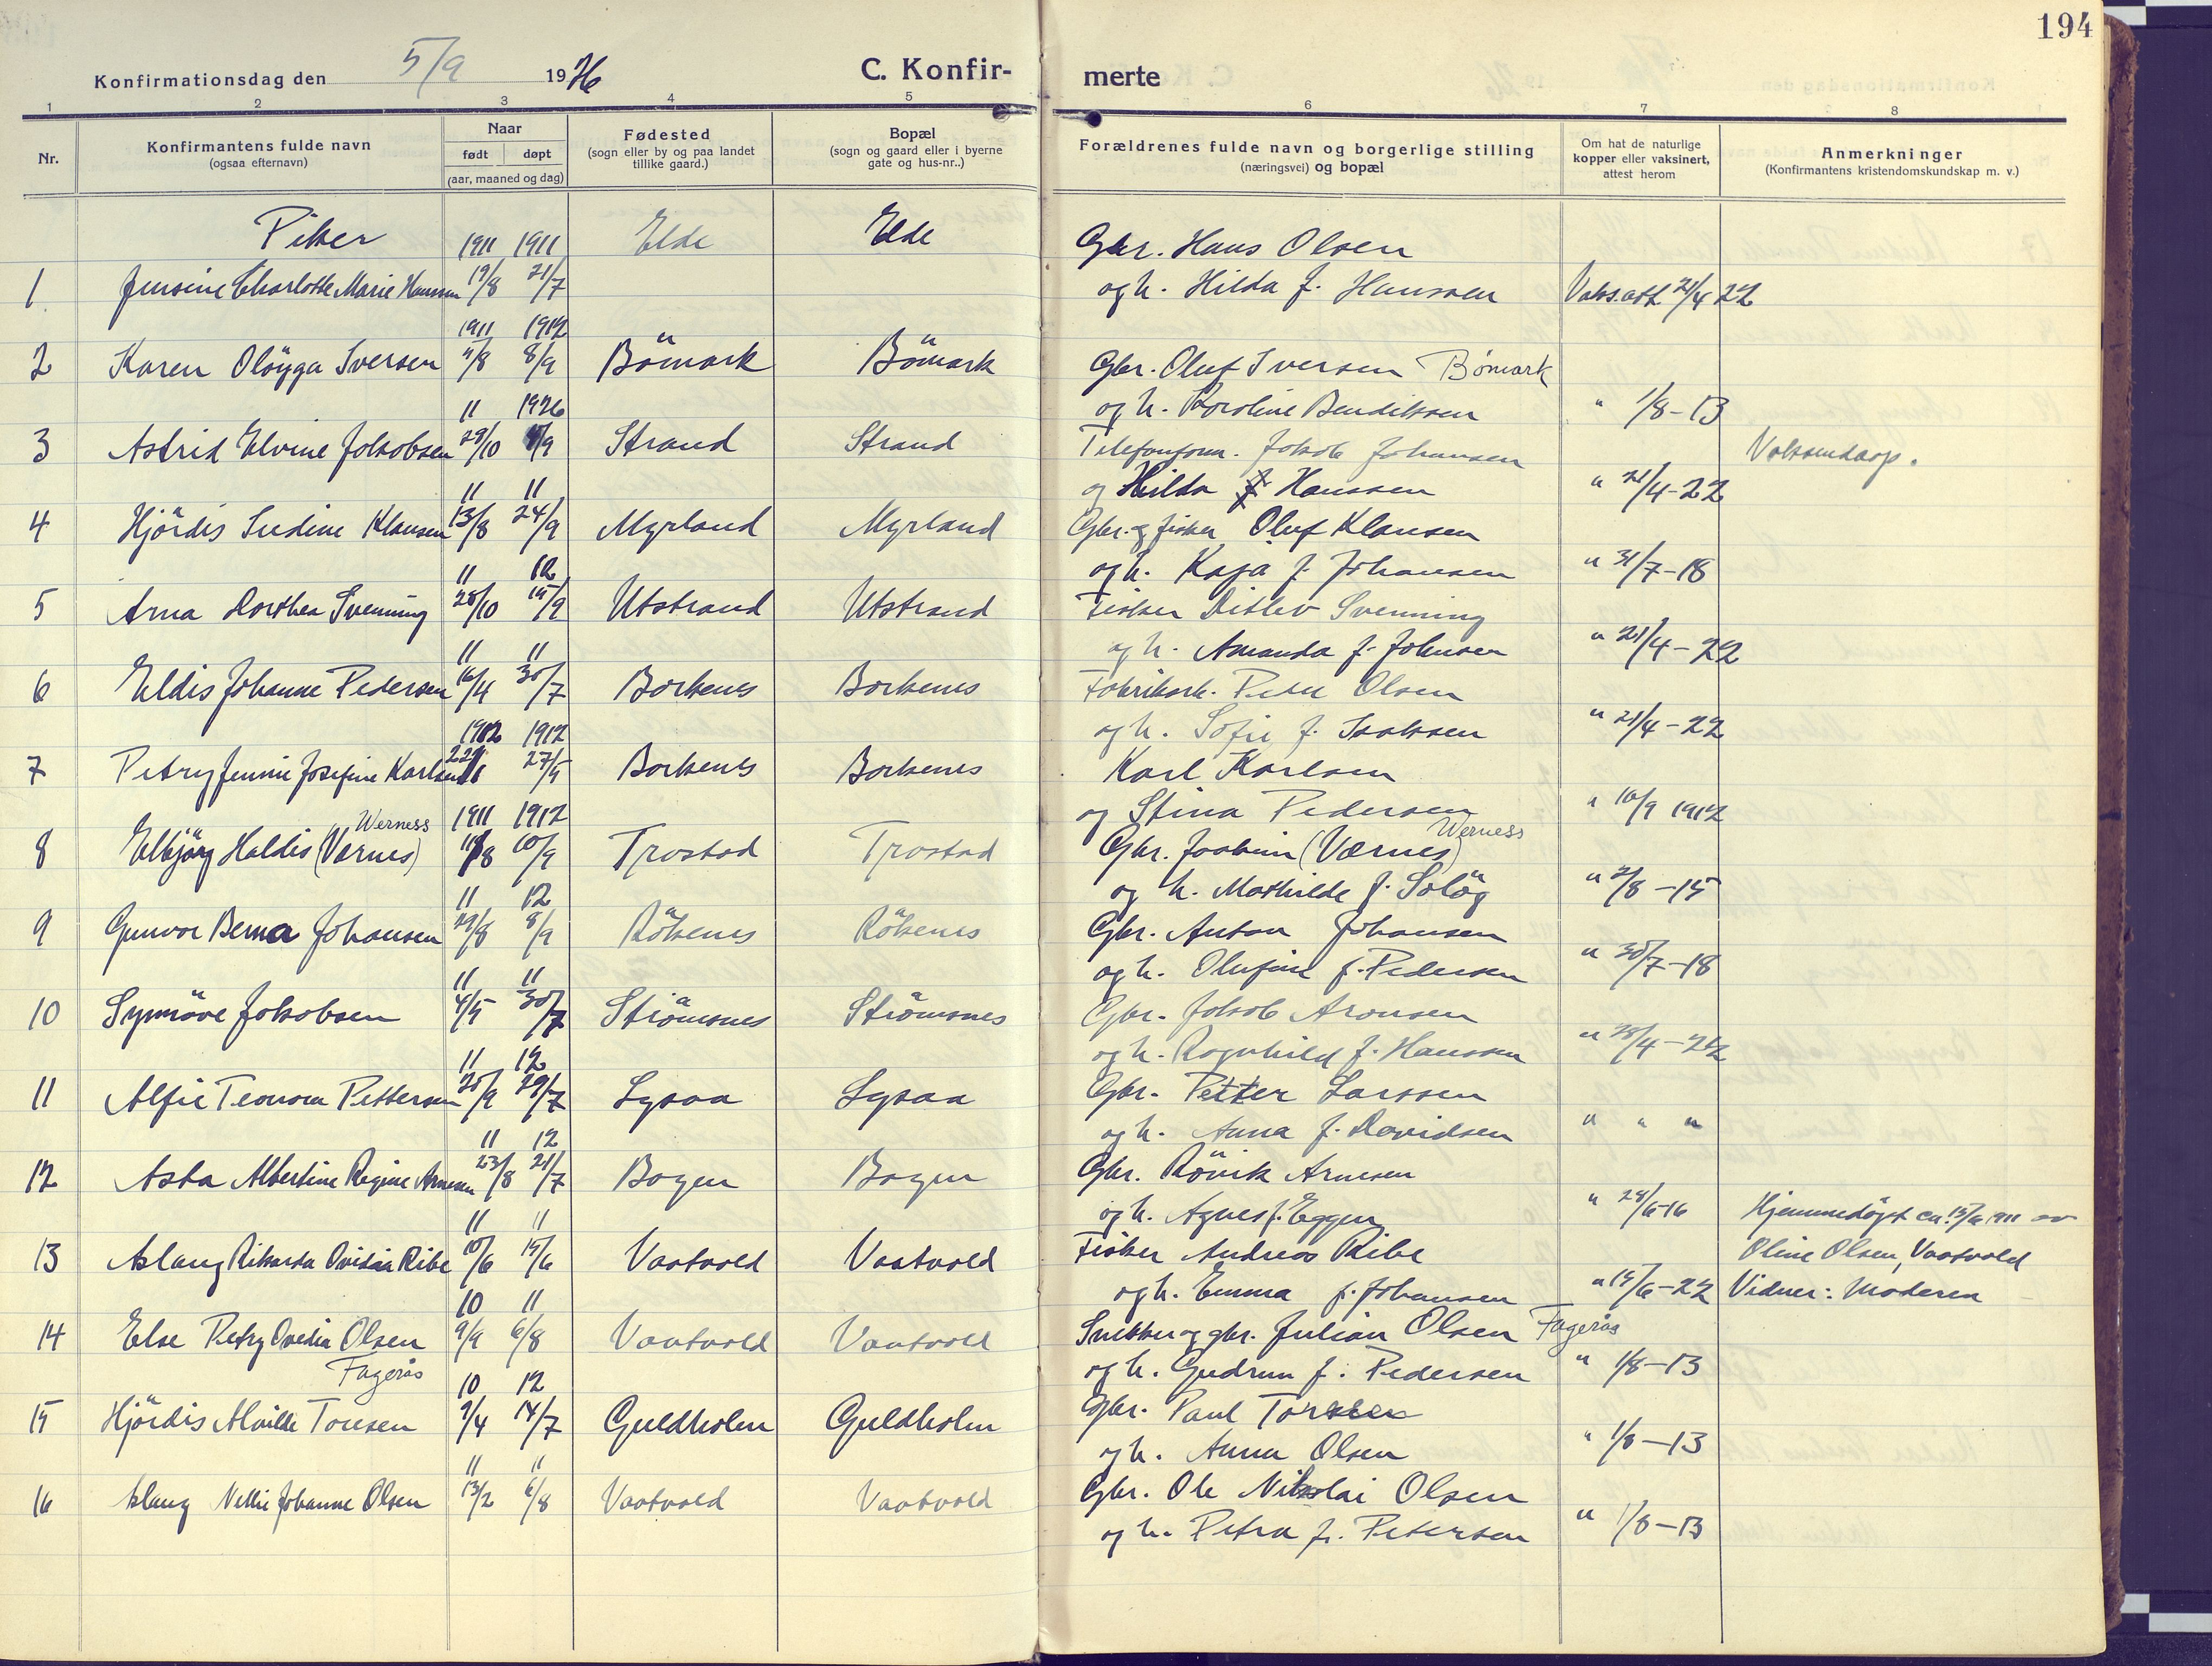 194
Konfirmationsdag den 5/9 1926
C. Konfir-
merte
1 2 3 4 5 6 7 8
Nr.
Konfirmantens fulde navn
(ogsaa efternavn)
Naar
født døpt
(aar, maaned og dag)
Fødested
(sogn eller by og paa landet
tillike gaard.)
Bopæl
(sogn og gaard eller i byerne
gate og hus-nr..)
Forældrenes fulde navn og borgerlige stilling
(næringsvei) og bopæl
Om hat de naturlige
kopper eller vaksinert,
attest herom
Anmerkninger
(Konfirmantens kristendomskundskap m. v.)
Piker
1911 1911 Elde Elde Gbr. Hans Olsen
1 Jensine Charlotte Marie Hansen 19/8 21/7 og h. Hilda f. Hanssen Vaks.att 21/4 22
1911 1912
2 Karen Olöyga Iversen 11/8 8/9 Bömark Bömark Gbr. Oluf Iversen Bømark
11 1926 og h. Karoline Bendiksen " 1/8-13
3 Astrid Elvine Jakobsen 29/10 /9 Strand Strand Jakob Johansen Voksendaap.
11 11 og Hilda f. Hanssen " 21/4-22
4 Hjördis Indine Klausen 13/8 24/9 Myrland Myrland Gbr. og fisker Oluf Klausen
11 12 og h. Kaja f. Johansen " 31/7-18
5 Arna Dorthea Svenning 28/10 15/9 Utstrand Utstrand Fisker Ditlev Svenning
11 11 og h. Amanda f. Johnsen " 21/4-22
6 Eldis Johanne Pedersen 16/4 30/7 Borkenes Borkenes Fabrikarb. Peder Olsen
1912 1912 og h. Sofie f. Isaksen " 21/4-22
7 Petry Jennie Josefine Karlsen 22/ 27/5 Borkenes Borkenes Karl Karlsen
Werness 1911 1912 og Stina Pedersen " 16/9 1912
8 Elbjörg Haldis (Vernes) /8 10/9 Trostad Trostad Gbr. Joakim (Værnes) Werness
11 12 og h. Mathilde f. Solög " 2/8-15
9 Gunvor Berna Johansen 29/8 8/9 Rökenes Rökenes Gbr. Anton Johansen
11 11 og h. Olufine f. Pedersen " 30/7-18
10 Synnöve Jakobsen 4/5 30/7 Strömsnes Strömsnes Gbr. Jakob Aronsen
11 12 og h. Ragnhild f. Hanssen " 28/4-22
11 Alfie Teonora Pettersen 20/9 29/7 Lysaa Lysaa Gbr. Petter Larssen
11 12 og h. Anna f. Davidsen " " "
12 Asta Albertine Regine Arnesen 23/8 21/7 Bogen Bogen Gbr. Rövik Arnesen
11 11 og h. Agnes f. Eggen " 28/6-16 Hjemmedøpt ca. 15/6 1911 av
13 Aslaug Rikarda Ovidia Ribe 10/6 15/6 Vaatvold Vaatvold Fisker Andreas Ribe Oline Olsen, Vaatvold
10 11 og h. Emma f. Johansen " 15/6-22 Vidner: Moderen
14 Else Petry Ovedia Olsen 9/9 6/8 Vaatvold Vaatvold Snekker og gbr. Julian Olsen Fagerås
Fagerås 10 12 og h. Gudrun f. Pedersen " 1/8-13
15 Hjördis Alvilde Toresen 9/4 14/7 Guldholm Guldholm Gbr. Paul
11 11 og h. Anna Olsen " 1/8-13
16 Aslaug Nellie Johanne Olsen 13/2 6/8 Vaatvold Vaatvold Gbr. Ole Nikolai Olsen
og h. Petra f. Petersen " 1/8-13